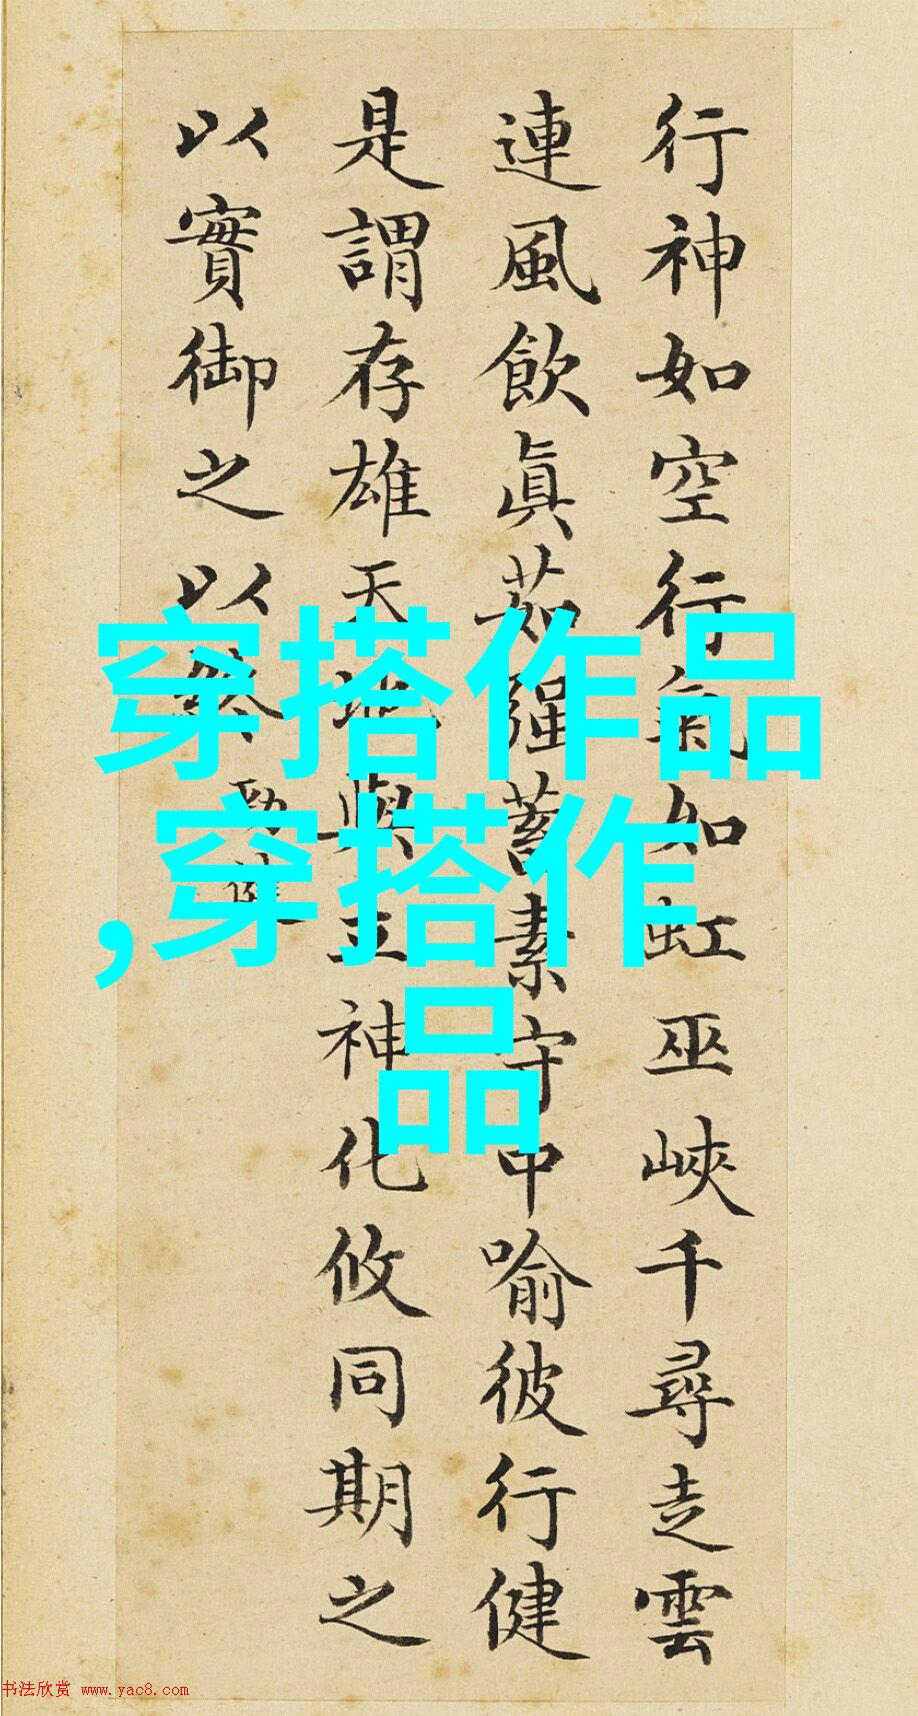 行神如空行氣如虹巫峽千尋走雲
連風飲眞茹强蓄素守中喻彼行健
是謂存雄天地與立神化攸同期之
以實御之以終
勁健
穿搭作品
,穿搭作
品
书法欣赏 www.yac8.com